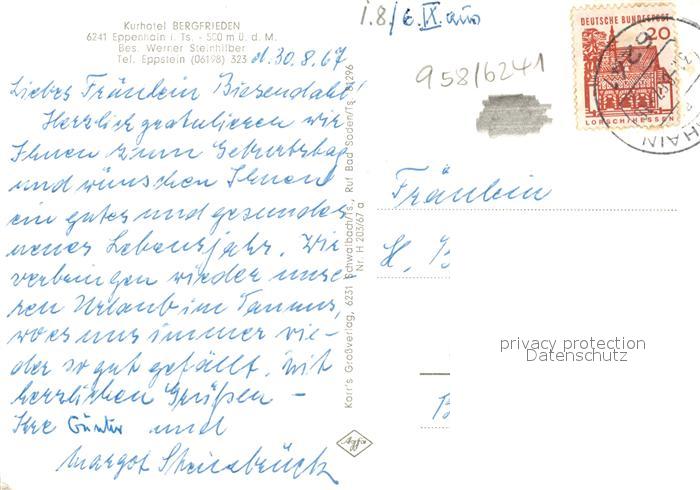 Kurhotel BERGFRIEDEN
6241 Eppenhain i. Ts. - 500 m ü. d. M.
Bes. Werner Steinhilber
Tel. Eppstein (06198) 323
d. 30.8.67
Liebes Fräulein Biesendahl!
Herzlich gratulieren wir
Ihnen zum Geburtstag
und wünschen Ihnen
ein gutes und gesundes
neues Lebensjahr. Wir
verbringen wieder unse-
ren Urlaub im Taunus,
wo es uns immer wie-
der so gut gefällt. Mit
herzlichen Grüßen -
Ihre Günter und
Margot Steinbrück
Korr's Großverlag, 6231 Schwalbach/Ts., Ruf Bad Soden/Ts.
Nr. H 203/67 a
Agfa
958/6241
DEUTSCHE BUNDESPOST
20
LORSCH/HESSEN
624
HAIN
Fräulein
H. B
B
privacy protection
Datenschutz